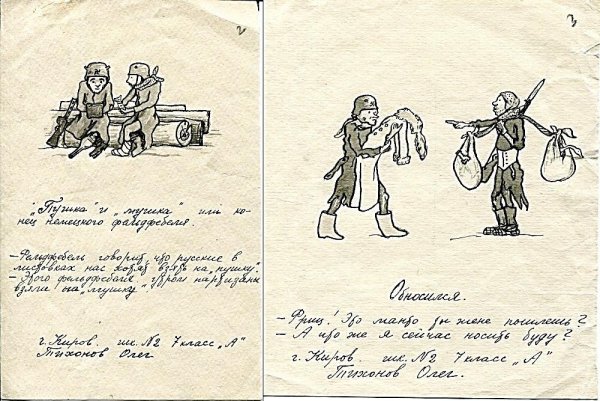 2
„Пушка" и „мушка" или ко-
нец немецкого фельдфебеля.
- Фельдфебель говорит, что русские в
листовках нас хотят взять на „пушку".
- Этого фельдфебеля утром партизаны
взяли на „мушку".
г. Киров шк. №2 7 класс „А"
Тихонов Олег
3
Обносился.
- Фриц! Это манто ты жене пошлешь?
- А что же я сейчас носить буду?
г. Киров. шк. №2 7 класс „А"
Тихонов Олег.